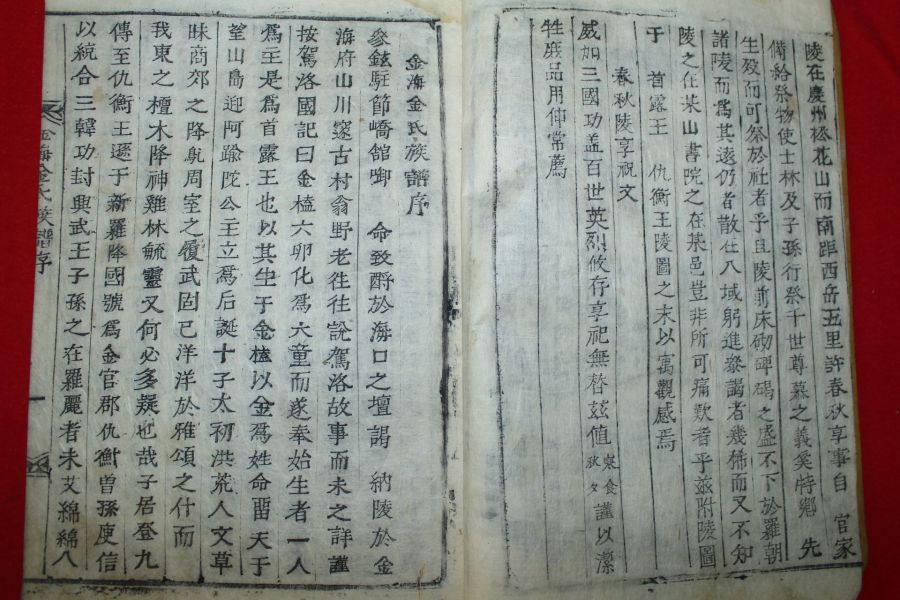 陵在慶州松花山而南距西岳五里許春秋享事自 官家
備給祭物使士林及子孫行祭千世尊慕之義奚特鄕 先
生歿而可祭於社者乎且陵前床砌碑碣之盛不下於羅朝
諸陵而爲其遠仍者散在八域躬進參謁者幾稀而又不知
陵之在某山書院之在某邑豈非所可痛歎者乎玆附陵圖
于 首露王 仇衡王陵圖之末以寓觀感焉
春秋陵享祝文
威加三國功盖百世英烈攸存享祀無替玆値 寒食 秋夕 謹以潔
牲庶品用伸常薦
金海金氏族譜序
參鉉駐節嶠舘啣 命致爵於海口之壇謁 納陵於金
海府山川邃古村翁野老往往說駕洛故事而未之詳謹
按駕洛國記曰金榼六卵化爲六童而遂奉始生者一人
爲主是爲首露王也以其生于金榼以金爲姓命畱天于
望山島迎阿踰陀公主立爲后誕十子太初洪荒人文草
昧商郊之降鳦周室之履武固已洋洋於雅頌之什而
我東之檀木降神雞林毓靈又何必多疑也哉子居登九
傳至仇衡王遜于新羅降國號爲金官郡仇衡曾孫庾信
以統合三韓功封興武王子孫之在羅麗者未艾綿綿八
金海金氏族譜序 一